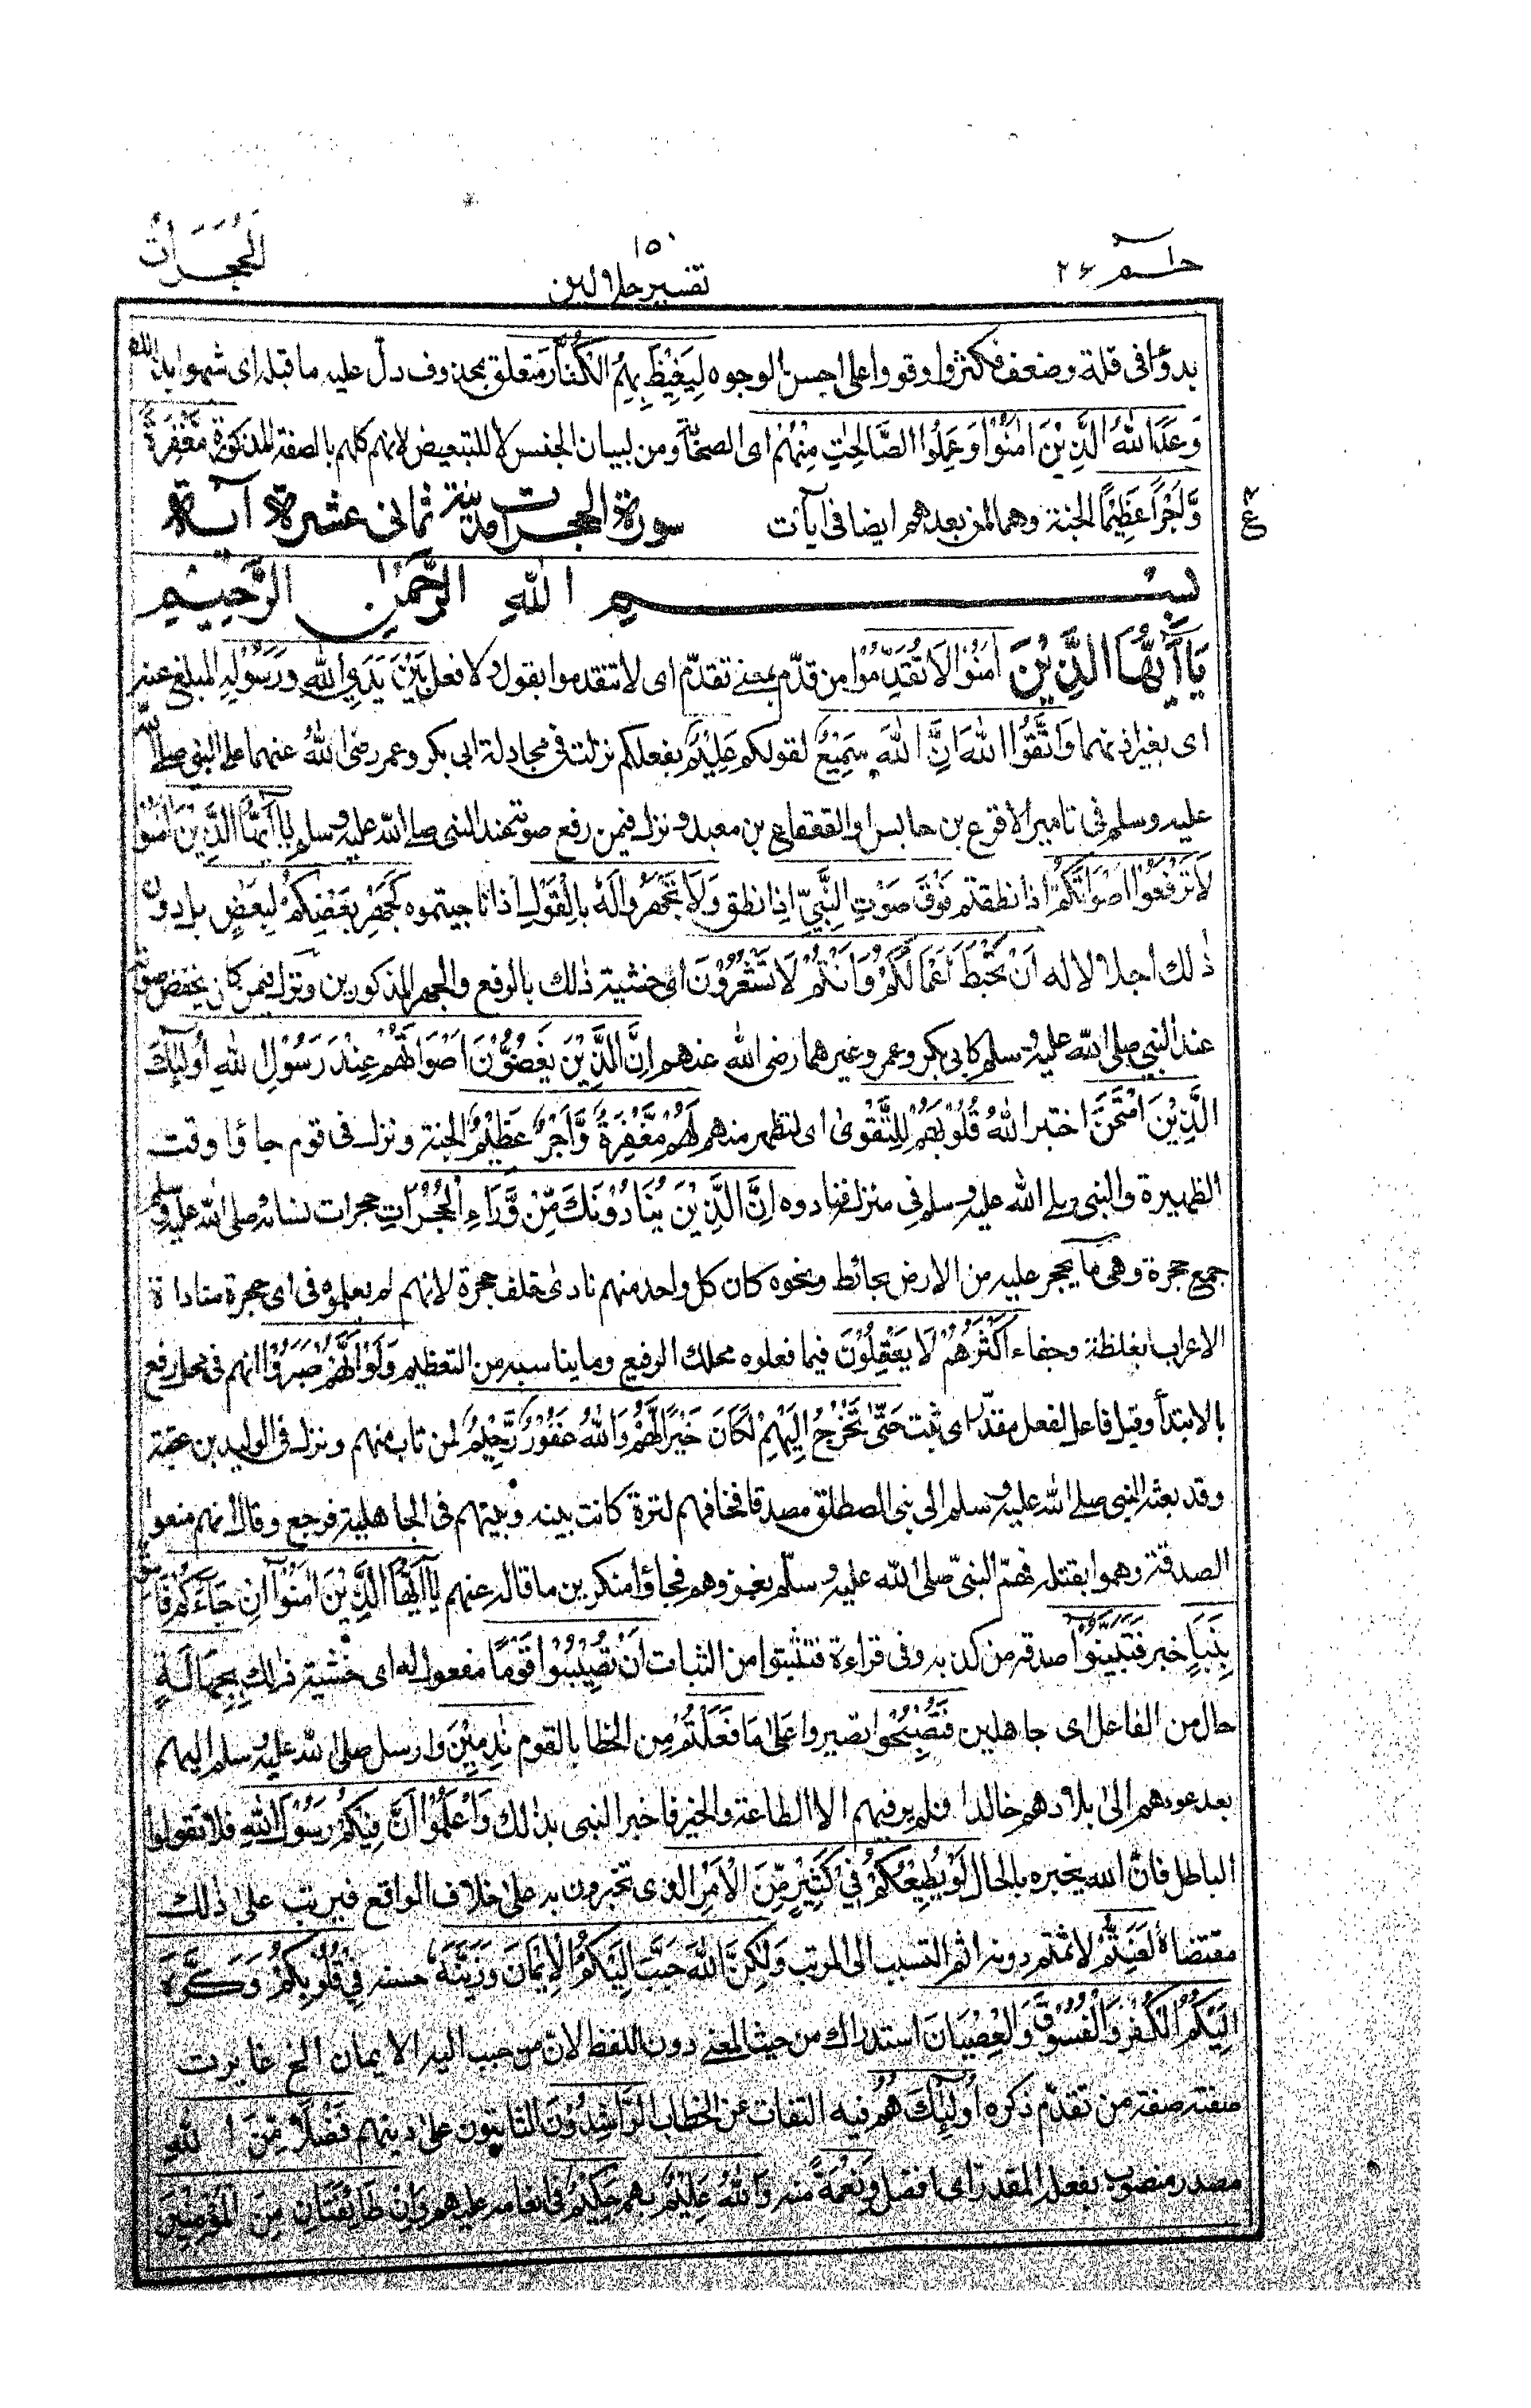 حٰمٓ ٢٦
١٥٠
تفسير جلالين
الحُجُرَات
بدؤا فى قلة وضعف فكثروا وقووا على احسن الوجوه لِيَغِيْظَ بِهِمُ الْكُفَّارَ متعلق بمحذوف دلّ عليه ما قبله اى شبهوا بذلك
وَعَدَ اللهُ الَّذِيْنَ اٰمَنُوْا وَعَمِلُوا الصَّالِحٰتِ مِنْهُمْ اى الصحابة ومن لبيان الجنس لا للتبعيض لانهم كلهم بالصفة المذكورة مَّغْفِرَةً
وَّاَجْرًا عَظِيْمًا الجنة وهما لمن بعدهم ايضا فى آيات سورة الحجرات مدنية ثمانى عشرة آية
ع
بِسْمِ اللهِ الرَّحْمٰنِ الرَّحِيْمِ
يَا اَيُّهَا الَّذِيْنَ اٰمَنُوْا لَا تُقَدِّمُوْا من قدّم بمعنى تقدّم اى لا تتقدموا بقول ولا فعل بَيْنَ يَدَيِ اللهِ وَرَسُوْلِهِ المبلغ عنه
اى بغير اذنهما وَاتَّقُوا اللهَ اِنَّ اللهَ سَمِيْعٌ لقولكم عَلِيْمٌ بفعلكم نزلت فى مجادلة ابى بكر وعمر رضى اللهُ عنهما على النبى صلى الله
عليه وسلم فى تامير الاقرع بن حابس او القعقاع بن معبد ونزل فيمن رفع صوته عند النبى صلى الله عليه وسلم يَا اَيُّهَا الَّذِيْنَ اٰمَنُوْا
لَا تَرْفَعُوْا اَصْوَاتَكُمْ اذا نطقتم فَوْقَ صَوْتِ النَّبِيِّ اذا نطق وَلَا تَجْهَرُوْا لَهُ بِالْقَوْلِ اذا ناجيتموه كَجَهْرِ بَعْضِكُمْ لِبَعْضٍ بل دون
ذٰلك اجلالا له اَنْ تَحْبَطَ اَعْمَالُكُمْ وَاَنْتُمْ لَا تَشْعُرُوْنَ اى خشية ذٰلك بالرفع والجهر المذكورين ونزل فيمن كان يخفض صوته
عند النبى صلى الله عليه وسلم كابى بكر وعمر وغيرهما رضى الله عنهم اِنَّ الَّذِيْنَ يَغُضُّوْنَ اَصْوَاتَهُمْ عِنْدَ رَسُوْلِ اللهِ اُولٰٓئِكَ
الَّذِيْنَ امْتَحَنَ اختبر اللهُ قُلُوْبَهُمْ لِلتَّقْوٰى اى لتظهر منهم لَهُمْ مَّغْفِرَةٌ وَّاَجْرٌ عَظِيْمٌ الجنة ونزل فى قوم جاؤا وقت
الظهيرة والنبى صلى الله عليه وسلم فى منزله فنادوه اِنَّ الَّذِيْنَ يُنَادُوْنَكَ مِنْ وَّرَاءِ الْحُجُرَاتِ حجرات نسائه صلى الله عليه وسلم
جمع حجرة وهى ما يحجر عليه من الارض بحائط ونحوه كان كل واحد منهم نادى خلف حجرة لانهم لم يعلموه فى اى حجرة مناداة
الاعراب بغلظة وجفاء اَكْثَرُهُمْ لَا يَعْقِلُوْنَ فيما فعلوه محلك الرفيع وما يناسبه من التعظيم وَلَوْ اَنَّهُمْ صَبَرُوْا انهم فى محل رفع
بالابتدأ وقيل فاعل لفعل مقدّر اى ثبت حَتّٰى تَخْرُجَ اِلَيْهِمْ لَكَانَ خَيْرًا لَّهُمْ وَاللهُ غَفُوْرٌ رَّحِيْمٌ لمن تاب منهم ونزل فى الوليد بن عقبة
وقد بعثه النبى صلى الله عليه وسلم الى بنى المصطلق مصدقا فخافهم لترة كانت بينه وبينهم فى الجاهلية فرجع وقال انهم منعوا
الصدقة وهموا بقتله فهمّ النبىّ صلى الله عليه وسلّم بغزوهم فجاؤا منكرين ما قاله عنهم يَا اَيُّهَا الَّذِيْنَ اٰمَنُوْا اِنْ جَاءَكُمْ فَاسِقٌ
بِنَبَاٍ خبر فَتَبَيَّنُوْا صدقه من كذبه وفى قراءة فتثبتوا من الثبات اَنْ تُصِيْبُوْا قَوْمًا مفعول له اى خشية ذٰلك بِجَهَالَةٍ
حال من الفاعل اى جاهلين فَتُصْبِحُوْا تصيروا عَلٰى مَا فَعَلْتُمْ من الخطا بالقوم نٰدِمِيْنَ وارسل صلى الله عليه وسلم اليهم
بعد عودهم الى بلادهم خالدا فلم ير فيهم الا الطاعة والخير فاخبر النبى بذٰلك وَاعْلَمُوْا اَنَّ فِيْكُمْ رَسُوْلَ اللهِ فلا تقولوا
الباطل فانّ الله يخبره بالحال لَوْ يُطِيْعُكُمْ فِيْ كَثِيْرٍ مِّنَ الْاَمْرِ الذى تخبرون به على خلاف الواقع فيرتب على ذٰلك
مقتضاه لَعَنِتُّمْ لاثمتم دونه اثم التسبب الى المرتب وَلٰكِنَّ اللهَ حَبَّبَ اِلَيْكُمُ الْاِيْمَانَ وَزَيَّنَهُ حسنه فِيْ قُلُوْبِكُمْ وَكَرَّهَ
اِلَيْكُمُ الْكُفْرَ وَالْفُسُوْقَ وَالْعِصْيَانَ استدراك من حيث المعنى دون اللفظ لانّ من حبب اليه الايمان الخ غايرت
صفته صفة من تقدّم ذكره اُولٰٓئِكَ هُمْ فيه التفات عن الخطاب الرَّاشِدُوْنَ الثابتون على دينهم فَضْلًا مِّنَ اللهِ
مصدر منصوب بفعله المقدّر اى افضل وَنِعْمَةً منه وَاللهُ عَلِيْمٌ بهم حَكِيْمٌ فى انعامه عليهم وَاِنْ طَائِفَتَانِ مِنَ الْمُؤْمِنِيْنَ